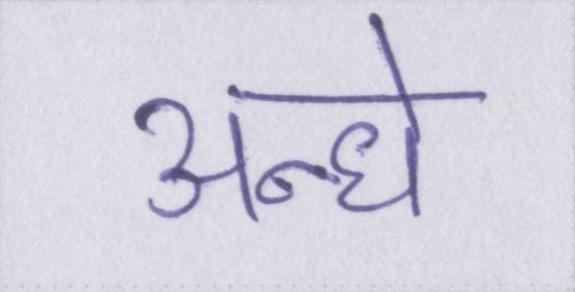 अन्धे